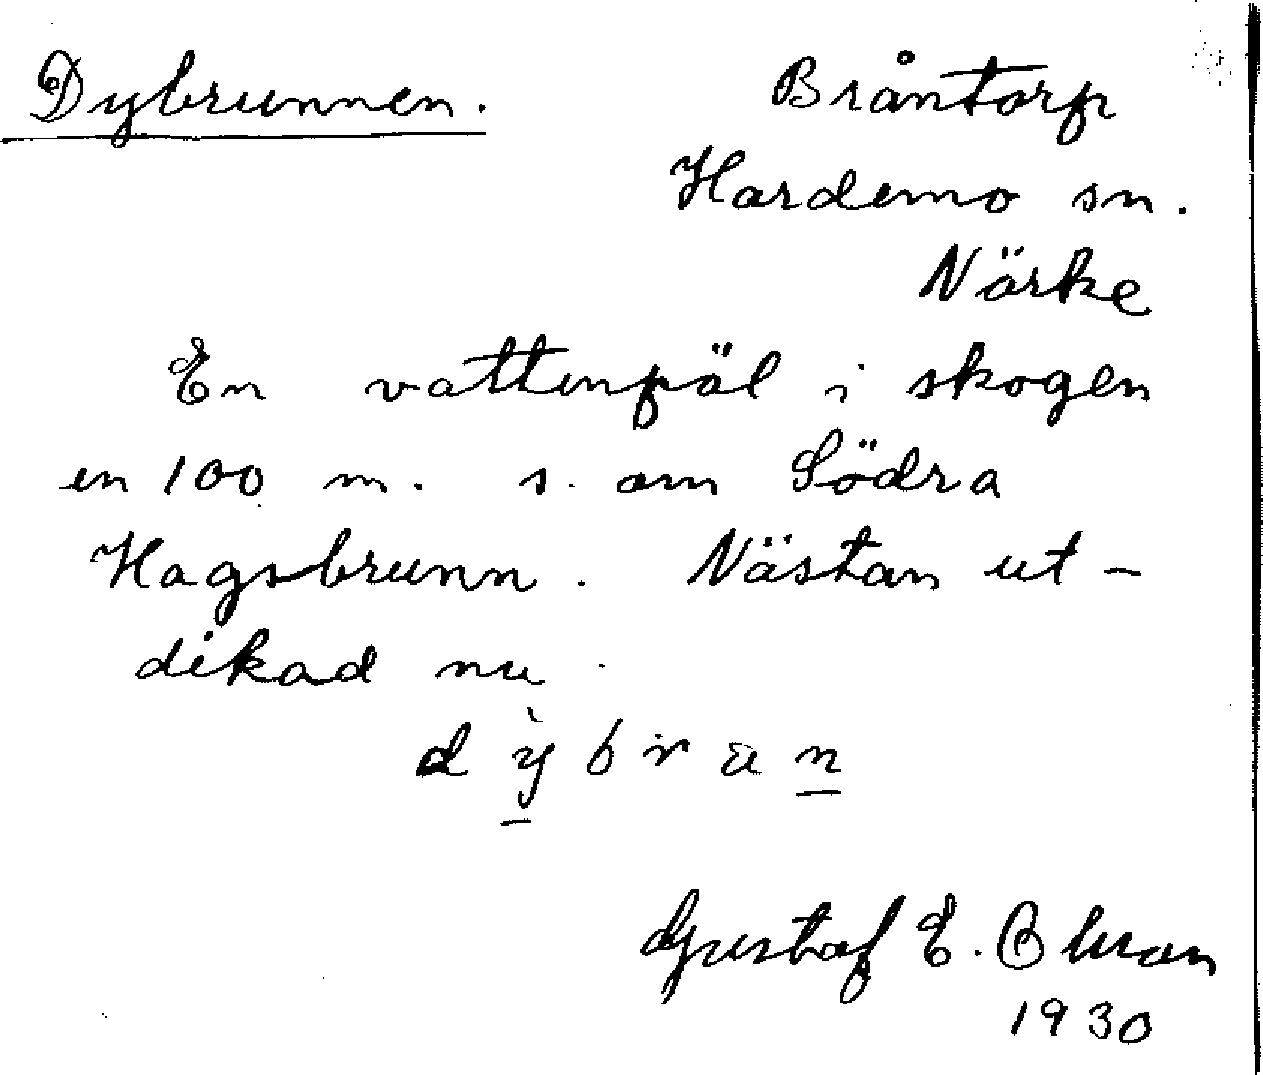 Dybrunnen. Bråntorp
Hardemo sn.
Närke
En vattenpöl i skogen
en 100 m. s. om Södra
Hagsbrunn. Nästan ut-
dikad nu.
dỳbrun
Gustaf E.
1930